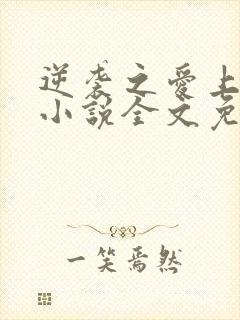 逆袭之爱上
小说全文免
一笑焉然